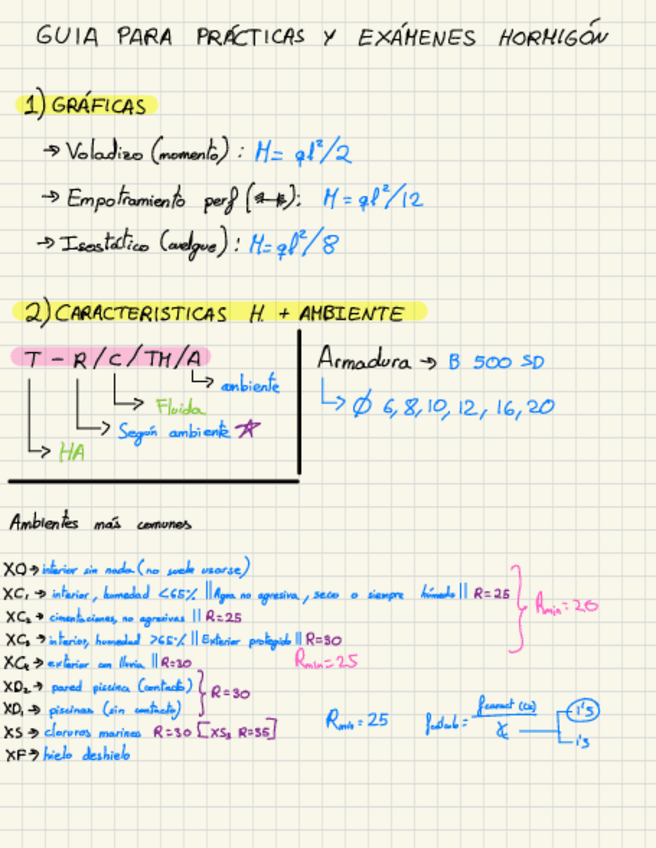 GUIA PARA PRÁCTICAS Y EXÁMENES HORMIGÓN
1) GRÁFICAS
→ Voladizo (momento): M = ql²/2
→ Empotramiento perf: M = ql²/12
→ Isostático (cuelgue): M = ql²/8
2) CARACTERISTICAS H + AMBIENTE
T - R / C / TM / A
ambiente
Fluida
Según ambiente ☆
HA
Armadura → B 500 SD
↳ Ø 6, 8, 10, 12, 16, 20
Ambientes más comunes
XO → interior sin nada (no suele usarse)
XC₁ → interior, humedad <65% || Agua no agresiva, seco o siempre húmedo || R=25
XC₂ → cimentaciones, no agresivas || R=25
XC₃ → interior, humedad >65% || Exterior protegido || R=30
Rmin = 20
XC₄ → exterior con lluvia || R=30 Rmin = 25
XD₂ → pared piscina (contacto)
XD₁ → piscinas (sin contacto)
} R=30
XS → cloruros marinos R=30 [XS₃ R=35]
XF → hielo deshielo
Rmin = 25
fcalculo =
γ
1'5
1'5